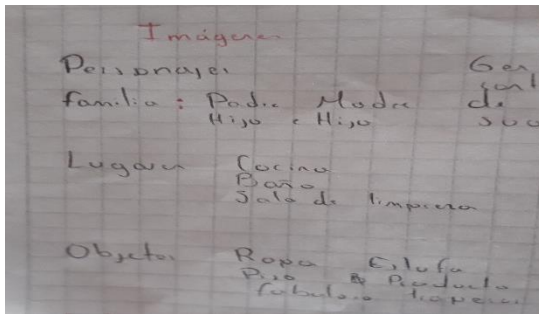 Imágenes
Personajes
familia : Padre Madre de
Hijo e Hijo
Lugares Cocina
Baño
Sala de limpieza
Objetos Ropa Estufa
Piso Producto